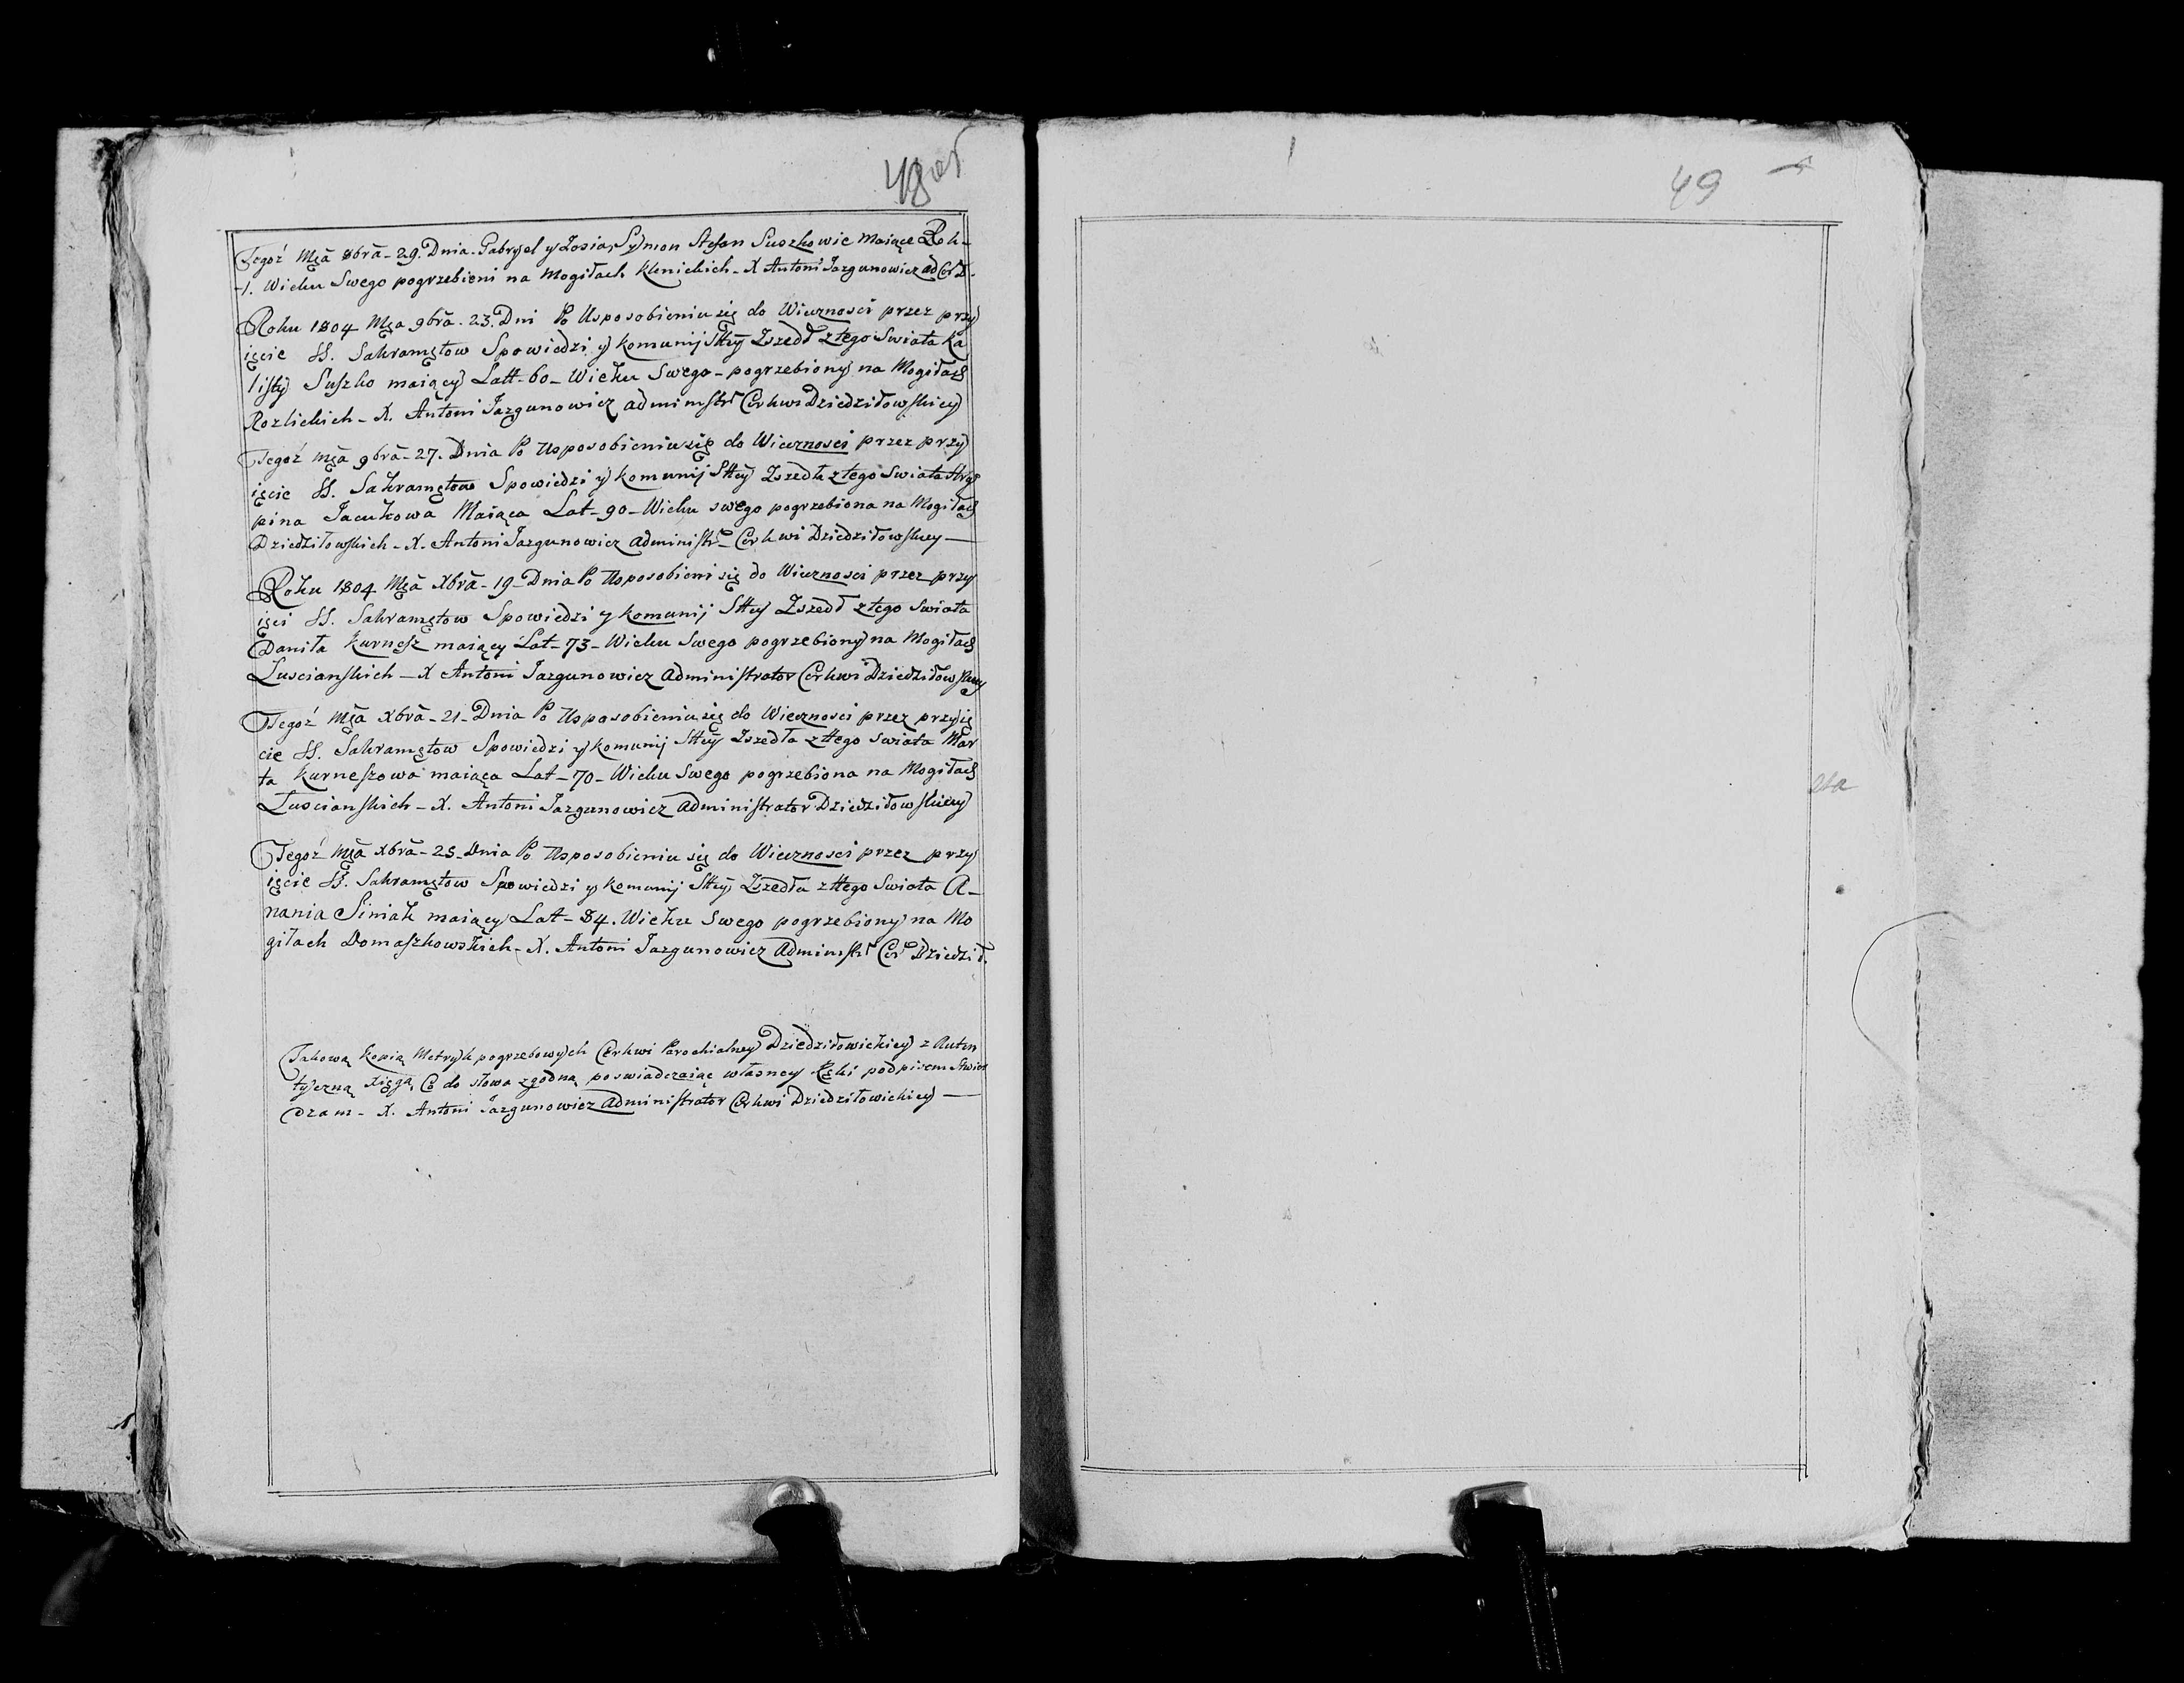 48 об
Tegoż Mca 8brā - 29. Dnia. Gabryel y Zosia, Symon Stefan Suszkowie Maiące Rok -
- 1. Wieku Swego pogrzebieni na Mogiłach Klenickich - X Antoni Jazgunowicz ad Cer D.
Roku 1804 Mca 9brā. 23. Dni Po Usposobieniu się do Wiecznosci przez przy
ięcie SS. Sakramętow Spowiedzi y Komunij Sttey Zszedł z tego Swiata Ka
listy Suszko maiący Latt - 60 - Wieku Swego - pogrzebiony na Mogiłach
Rozlickich - X. Antoni Jazgunowicz administr Cerkwi Dziedziłowskiey
Tegoż Mcā 9brā - 27. Dnia Po Usposobieniu się do Wiecznosci przez przy
ięcie SS. Sakramętow Spowiedzi y Komunij Sttey Zszedła z tego Swiata Ahry
pina Jacukowa Maiąca Lat - 90 - Wieku swego pogrzebiona na Mogiłach
Dziedziłowskich - X. Antoni Jazgunowicz administr Cerkwi Dziedziłowskiey
Roku 1804 Mcā Xbrā - 19 - Dnia Po Usposobieni się do Wiecznosci przez przy
ięci SS. Sakramętow Spowiedzi y Komunij Sttey Zszedł z tego Swiata
Daniła Kurnesz maiący Lat - 73 - Wieku Swego pogrzebiony na Mogiłach
Luscianskich - X Antoni Jazgunowicz administrator Cerkwi Dziedziłowskiey
Tegoż Mcā Xbrā - 21 - Dnia Po Usposobieniu się do Wiecznosci przez przyię
cie SS. Sakramętow Spowiedzi y Komunij Sttey Zszedła z ttego Swiata Mar
ta Kurneszowa maiąca Lat - 70 - Wieku Swego pogrzebiona na Mogiłach
Luscianskich - X. Antoni Jazgunowicz administrator Dziedziłowskiey
Tegoż Mcā Xbrā - 25 - Dnia Po Usposobieniu się do Wiecznosci przez przy
ięcie SS. Sakramętow Spowiedzi y Komunij Sttey Zszedła z ttego Swiata A-
nania Siniak maiący Lat - 84. Wieku Swego pogrzebiony na Mo
giłach Domaszkowskich - X. Antoni Jazgunowicz administr Cer Dziedził.
Takową Kopią Metryk pogrzebowych Cerkwi Parochialney Dziedziłowickiey z Auten
tyczną Xięgą, Co do słowa zgodną poswiadczaiąc własney Ręki podpisem stwier
dzam - X. Antoni Jazgunowicz administrator Cerkwi Dziedziłowickiey
49